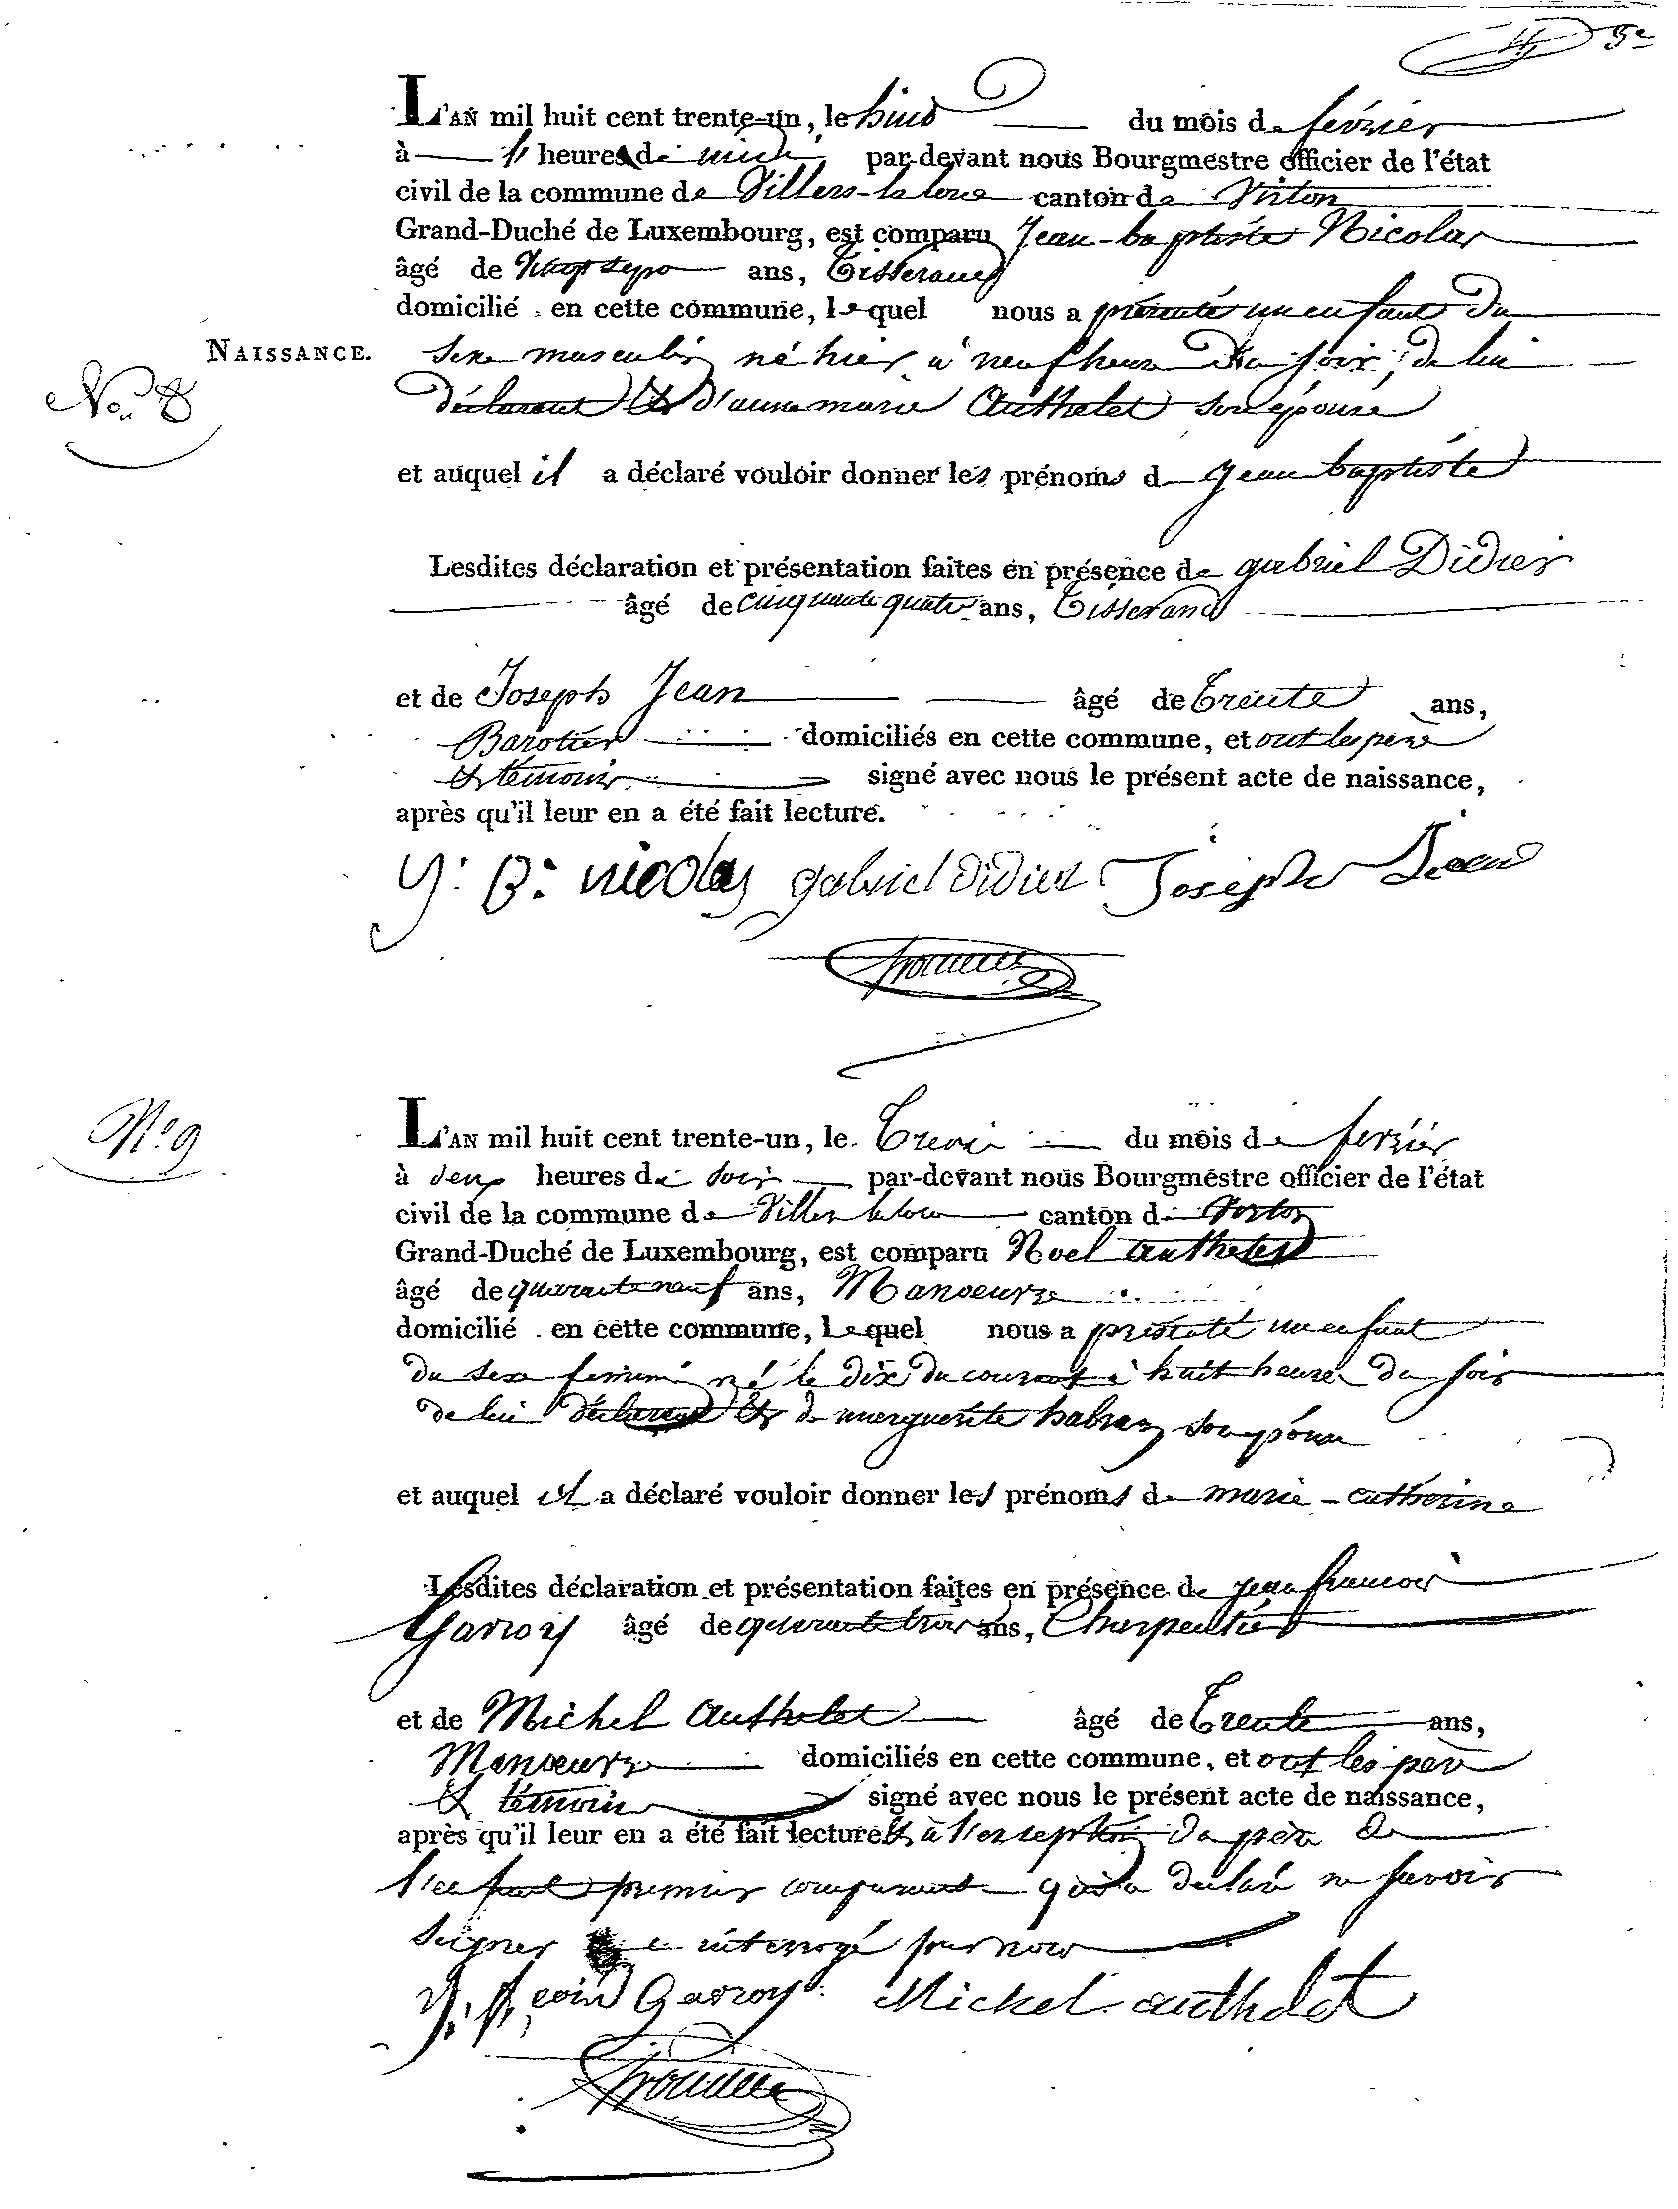 5e
L'AN mil huit cent trente-un, le huit du mois de février
à heures de midi par-devant nous Bourgmestre officier de l'état
civil de la commune de Villers-la loue canton de Virton
Grand-Duché de Luxembourg, est comparu Jean-baptiste Nicolas
âgé de ans, Tisserand
domicilié en cette commune, lequel nous a présenté un enfant du
NAISSANCE.
sexe masculin né hier à neuf heure du soir, de lui
No. 8
déclarant et d'anne marie Authelet son épouse
et auquel il a déclaré vouloir donner les prénoms de jean baptiste
Lesdites déclaration et présentation faites en présence de gabriel Didier
âgé de cinquante quatre ans, Tisserand
et de Joseph Jean âgé de Trente ans,
domiciliés en cette commune, et ont les père
et témoins signé avec nous le présent acte de naissance,
après qu'il leur en a été fait lecture.
J. B. nicolas gabriel didier Joseph Jean
No. 9
L'AN mil huit cent trente-un, le du mois de fevrier
à deux heures de soir par-devant nous Bourgmestre officier de l'état
civil de la commune de Villers laloue canton de Virton
Grand-Duché de Luxembourg, est comparu Noel authelet
âgé de quarante neuf ans, Manoeuvre
domicilié en cette commune, lequel nous a présenté un enfant
du sexe feminin né le dix du courant à huit heure du soir
de lui déclarant et de marguerite son épouse
et auquel il a déclaré vouloir donner les prénoms de marie-catherine
Lesdites déclaration et présentation faites en présence de jean françois
Garroy âgé de quarante trois ans, Charpentier
et de Michel Authelet âgé de Trente ans,
Manoeuvre domiciliés en cette commune, et ont les père
et témoin signé avec nous le présent acte de naissance,
après qu'il leur en a été fait lecture et à l'exception du père de
l'enfant premier comparant qui a declaré ne savoir
signer interrogé par nous
Garroy Michel authelet